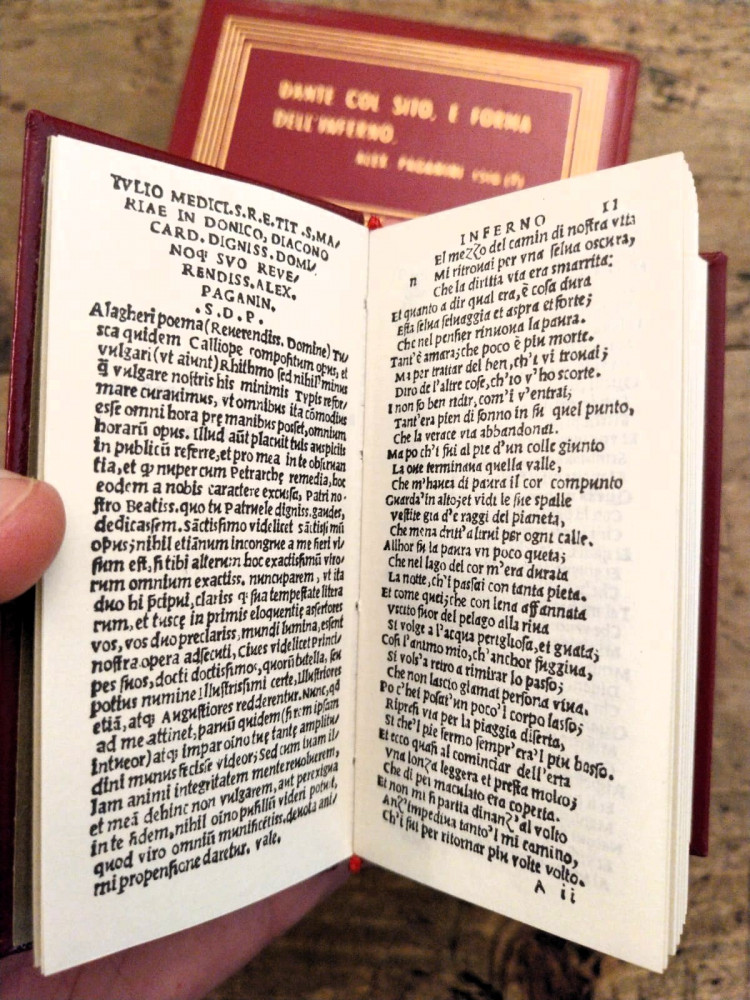 DANTE COL SITO, E FORMA
DELL'INFERNO.
ALEX PAGANINI
TVLIO MEDICI.S.R.E.TIT.S.MA/
RIAE IN DONICO, DIACONO
CARD. DIGNISS. DOMI/
NOQ SVO REVE/
RENDISS.ALEX.
PAGANIN.
.S.D.P.
Alagheri poema(Reuerendiss. Domine) Tu/
sca quidem Calliope compositum opus, et
vulgari(vt aiunt) Rhithmo sed nihil minus
q̃ vulgare nostris his minimis Typis refor/
mare curauimus, vt omnibus ita cõmodius
esse omni hora prę manibus posset, omnium
horarũ opus. Illud aũt placuit tuis auspiciis
in publicũ referre, et pro mea in te obseruan
tia, et q nuper cum Petrarchę remedia, hoc
eodem a nobis caractere excusa, Patri no-
stro Beatiss. quo tu Patruele digniss. gaudes,
dedicassem. sãctissimo videlicet sãctissimũ
opus; nihil etiãnum incongrue a me fieri vi/
sum est, si tibi alterum hoc exactissimũ viro/
rum omnium exactiss. nuncuparem, vt ita
duo hi p̃cipui, clariss q̃ sua tempestate litera
rum, et tuscę in primis eloquentię assertores
vos, vos duo preclariss. mundi lumina, essent
nostra opera adsecuti, Ciues videlicet Princi/
pes suos, docti doctissimos, quorũ tutella, seu
potius numine Illustrissimi certe, Illustriores
etiã, atq; Augustiores redderentur. Nunc, qđ
ad me attinet, paruũ quidem(si rem ipsam
intueor) atq; impar oino tuę tantę amplitu/
dini munus fecisse videor; Sed cum tuam il/
lam animi integritatem mente reuoluerem,
et meã dehinc non vulgarem, aut perexigua
in te fidem, nihil oino pusillũ videri potuit,
quod viro omniũ munificẽtiss. deuota ani/
mi propensione daretur. vale.
INFERNO II
El mezzo del camin di nostra vita
n Mi ritrouai per vna selua oscura,
Che la diritta via era smarrita:
Et quanto a dir qual era, è cosa dura
Esta selua seluaggia et aspra et forte;
Che nel pensier rinuoua la paura.
Tant'è amara; che poco è piu morte.
Ma per trattar del ben, ch'i vi trouai;
Diro de l'altre cose, ch'io v'ho scorte.
I non so ben ridir, com'i v'entrai;
Tant'era pien di sonno in su quel punto,
Che la verace via abbandonai.
Ma po ch'i fui al pie d'un colle giunto
La oue terminaua quella valle,
Che m'hauea di paura il cor compunto
Guarda'in alto; et vidi le sue spalle
Vestite gia d'e raggi del pianeta,
Che mena dritt'altrui per ogni calle.
Allhor fu la paura vn poco queta;
Che nel lago del cor m'era durata
La notte, ch'i passai con tanta pieta.
Et come quei; che con lena affannata
Vscito fuor del pelago alla riua
Si volge a l'acqua perigliosa, et guata;
Cosi l'animo mio, ch'anchor fuggiua,
Si vols'a retro a rimirar lo passo;
Che non lascio giamai persona viua.
Po c'hei posat'un poco'l corpo lasso;
Ripresi via per la piaggia diserta,
Si che'l pie fermo sempr'era'l piu basso.
Et ecco quasi al cominciar dell'erta
Vna lonza leggera et presta molto;
Che di pel maculato era coperta.
Et non mi si partia dinanz'al volto
Anz'impediua tanto'l mi camino,
Ch'i fui per ritornar piu volte volto.
A ii